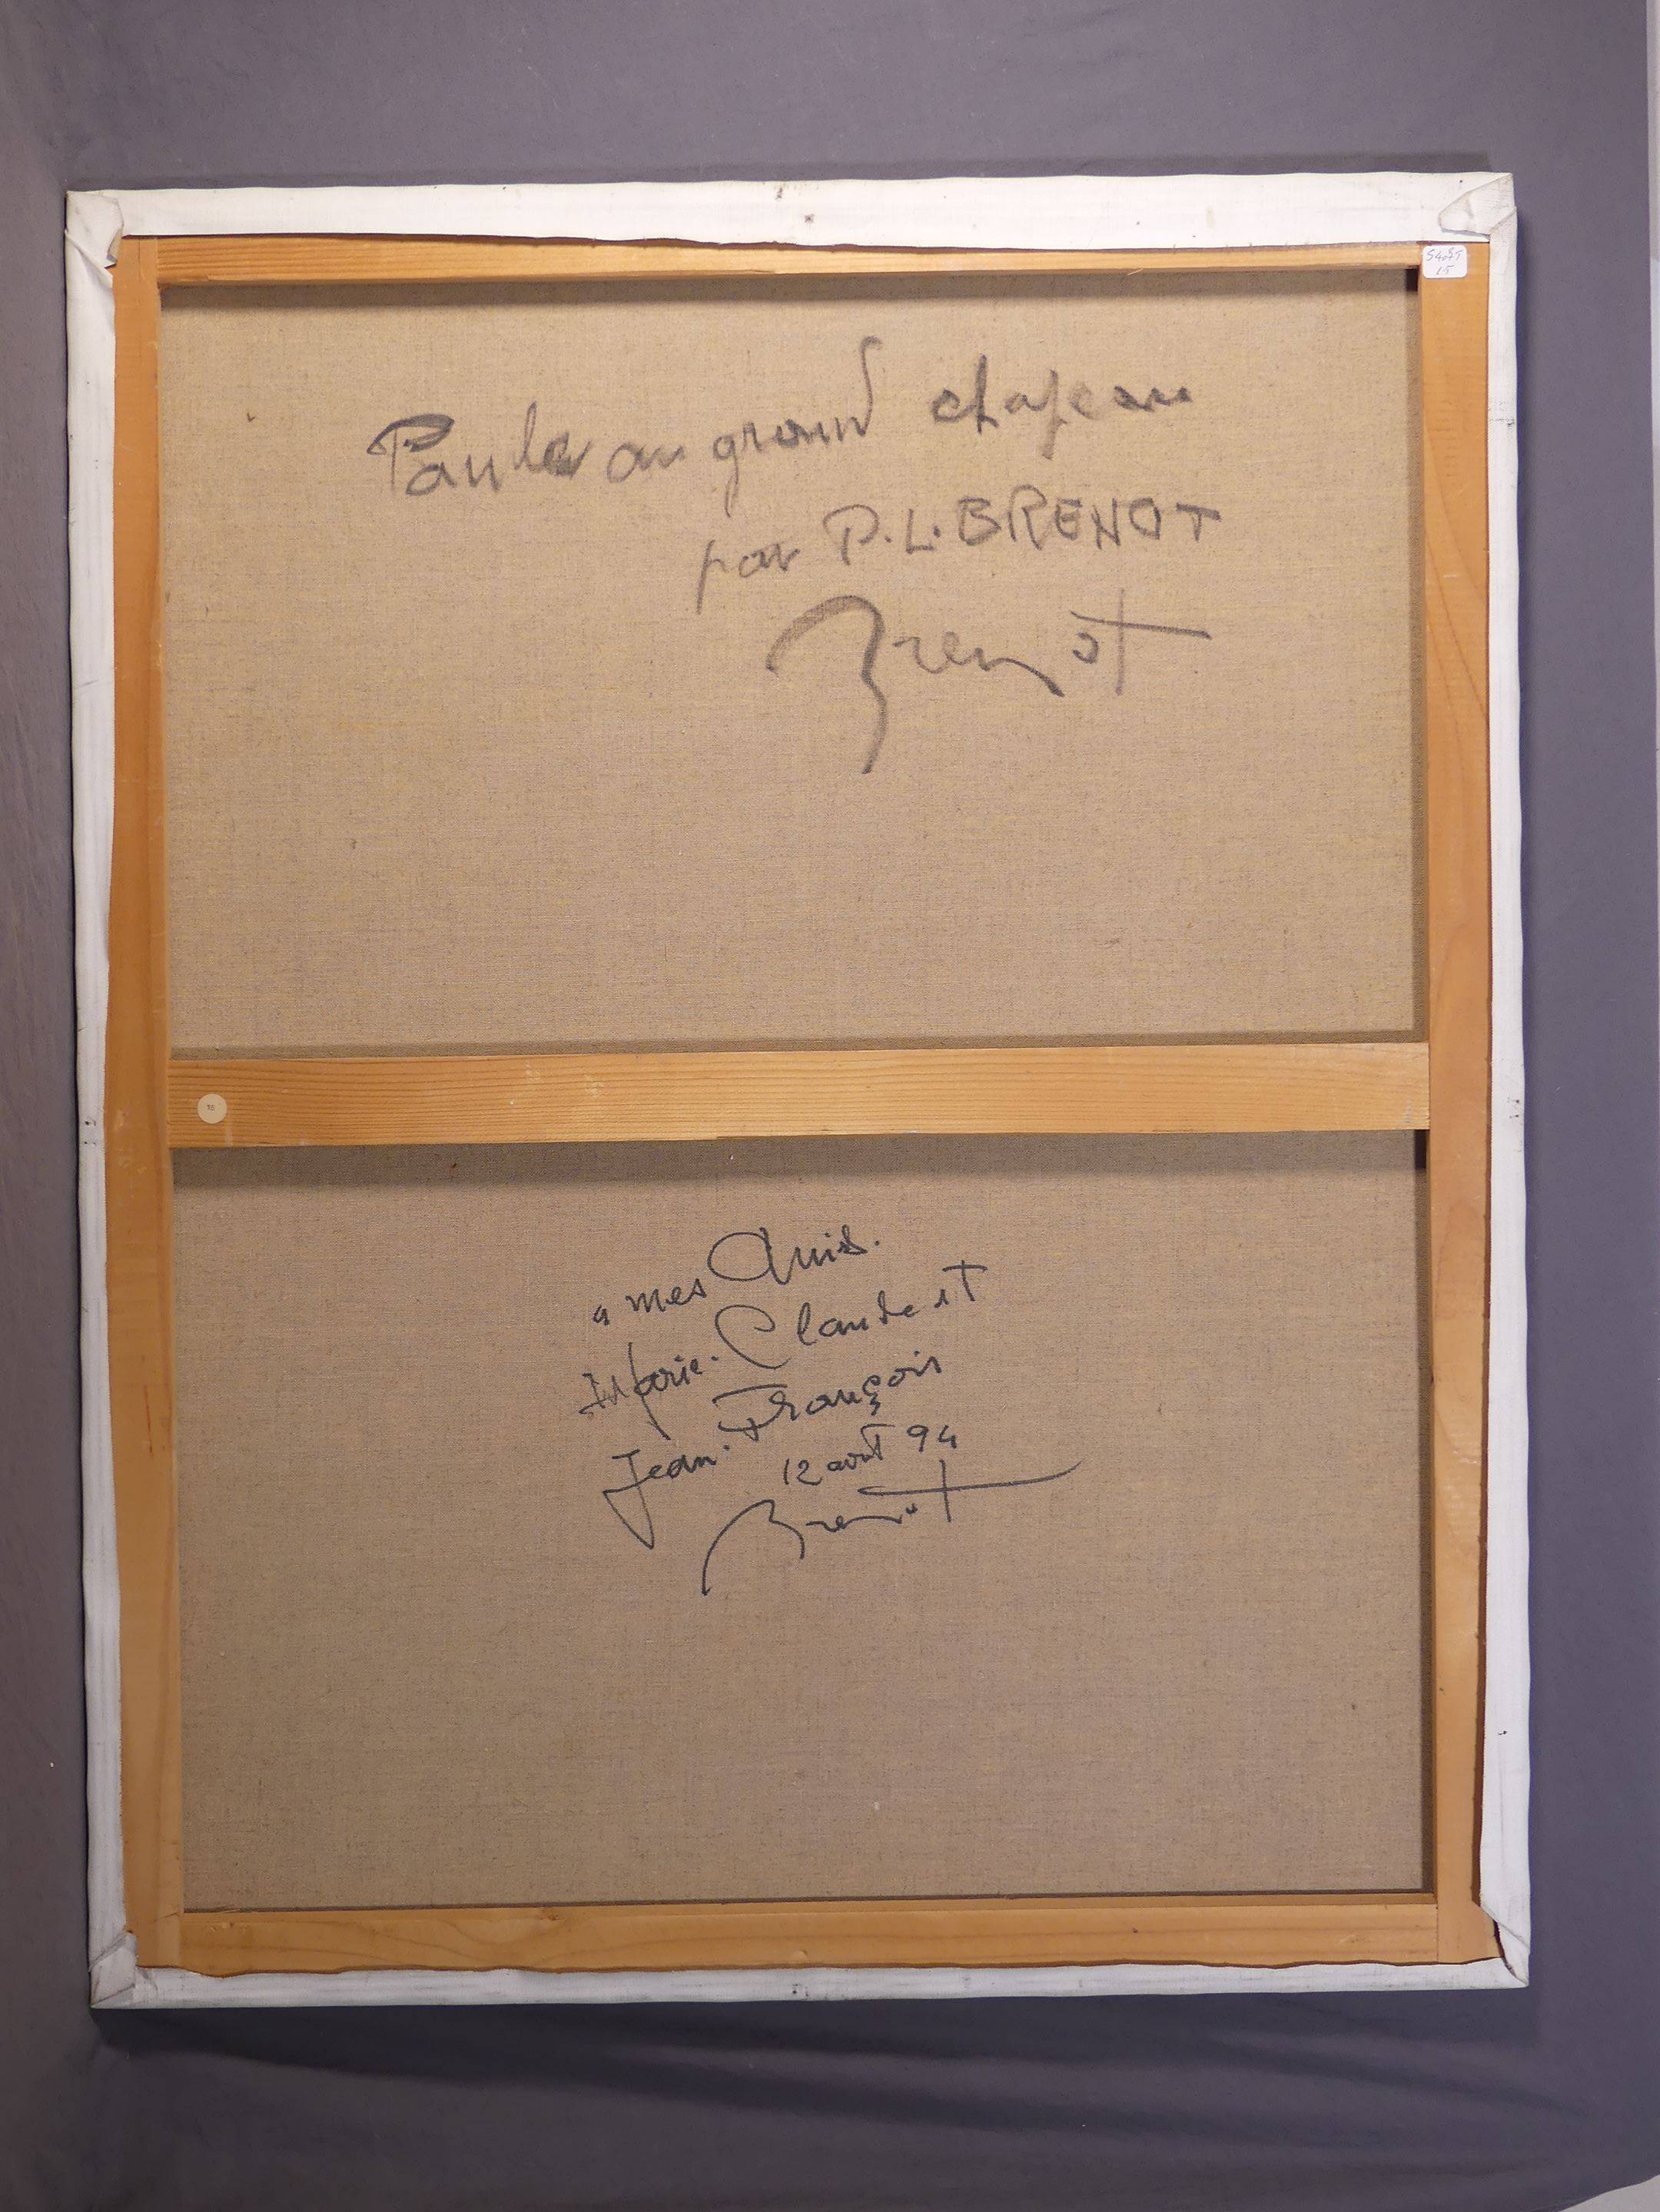 Paula au grand chapeau
par P.L. BRENOT
Brenot
a mes Amis.
Marie-Claude et
Jean-François
12 août 94
Brenot